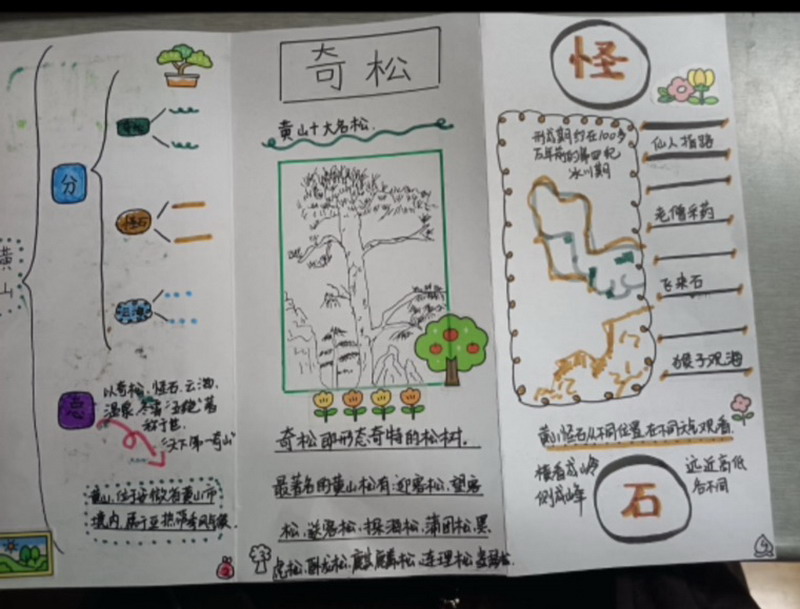 黄山
分
奇松
怪石
云海
总
以奇松、怪石、云海、
温泉、冬雪“五绝”著
称于世
“天下第一奇山”
黄山,位于安徽省黄山市
境内,属于亚热带季风气候
奇松
黄山十大名松
奇松即形态奇特的松树.
最著名的黄山松有:迎客松,望客
松,送客松,探海松,蒲团松,黑
虎松,卧龙松,麒麟松,连理松
怪
形成期约在100多
万年前的第四纪
冰川期
仙人指路
老僧采药
飞来石
猴子观海
黄山怪石从不同位置,在不同天气观看.
横看成岭
侧成峰
远近高低
各不同
石